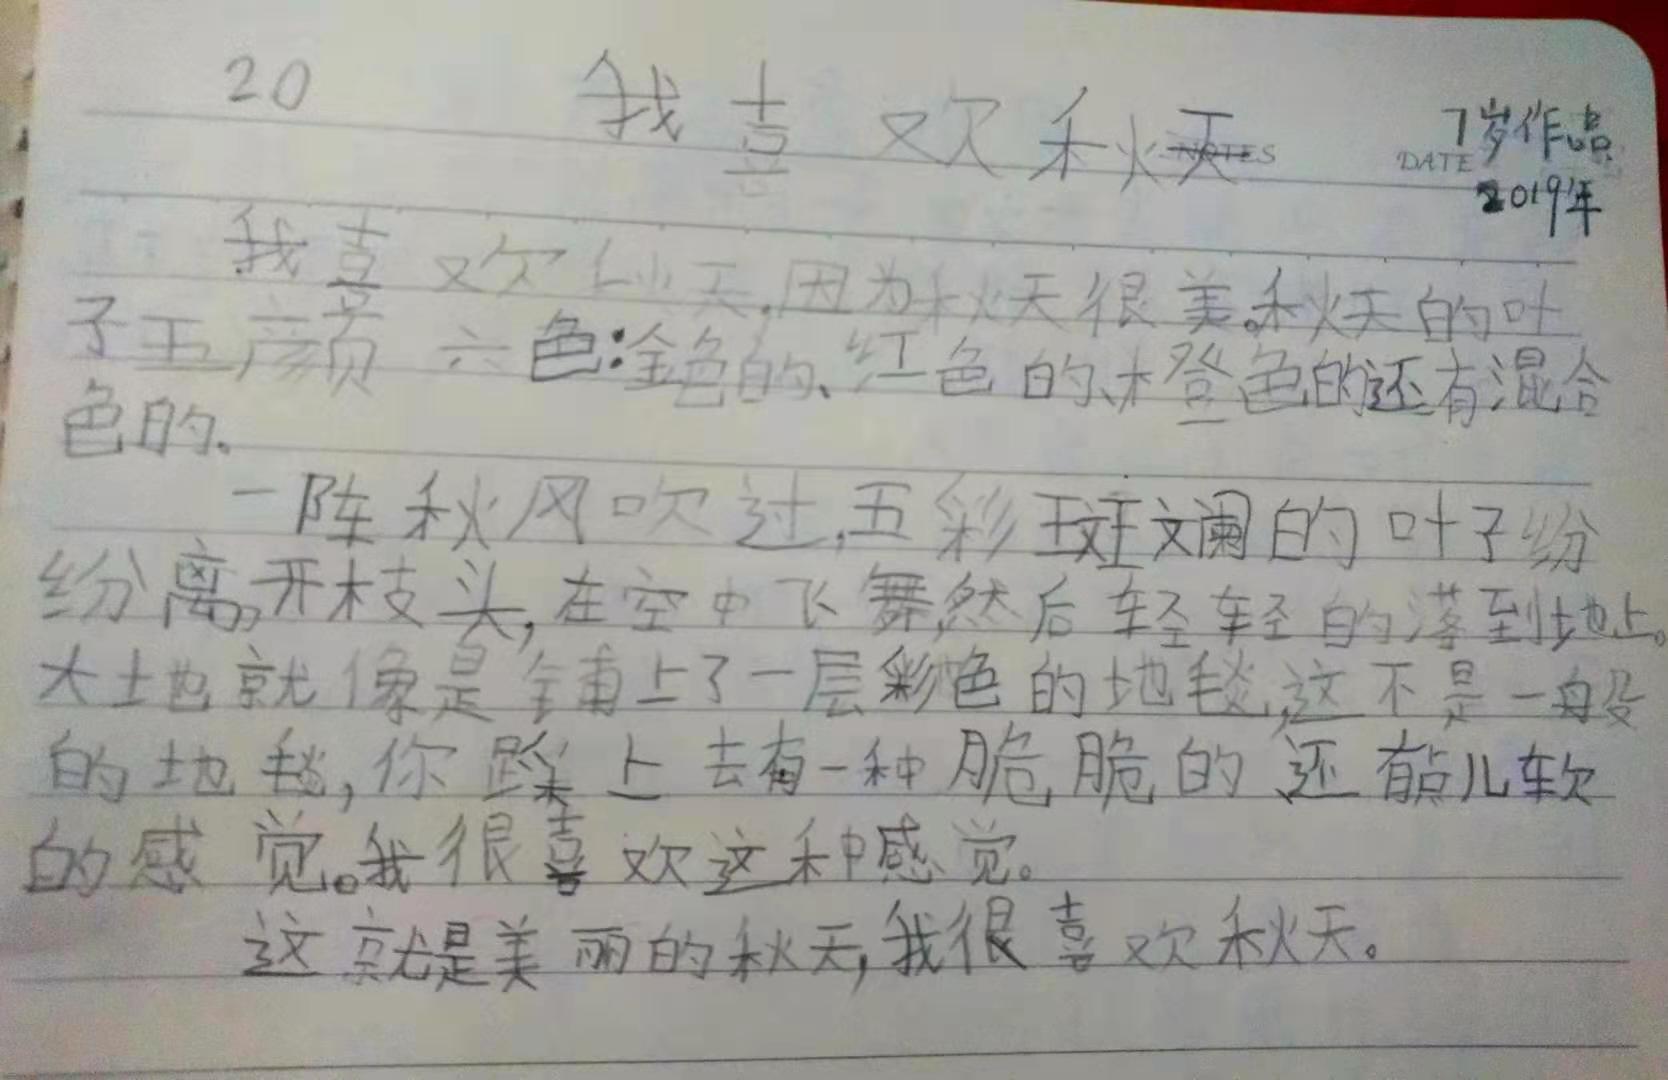 20 我喜欢秋天 7岁作品
NOTES DATE 2019年
我喜欢秋天,因为秋天很美。秋天的叶
子五颜六色:金色的、红色的、橙色的还有混合
色的。
一阵秋风吹过,五彩斑斓的叶子纷
纷离开枝头,在空中飞舞,然后轻轻的落到地上。
大土地就像是铺上了一层彩色的地毯,这不是一般
的地毯,你踩上去有一种脆脆的还有点儿软
的感觉。我很喜欢这种感觉。
这就是美丽的秋天,我很喜欢秋天。